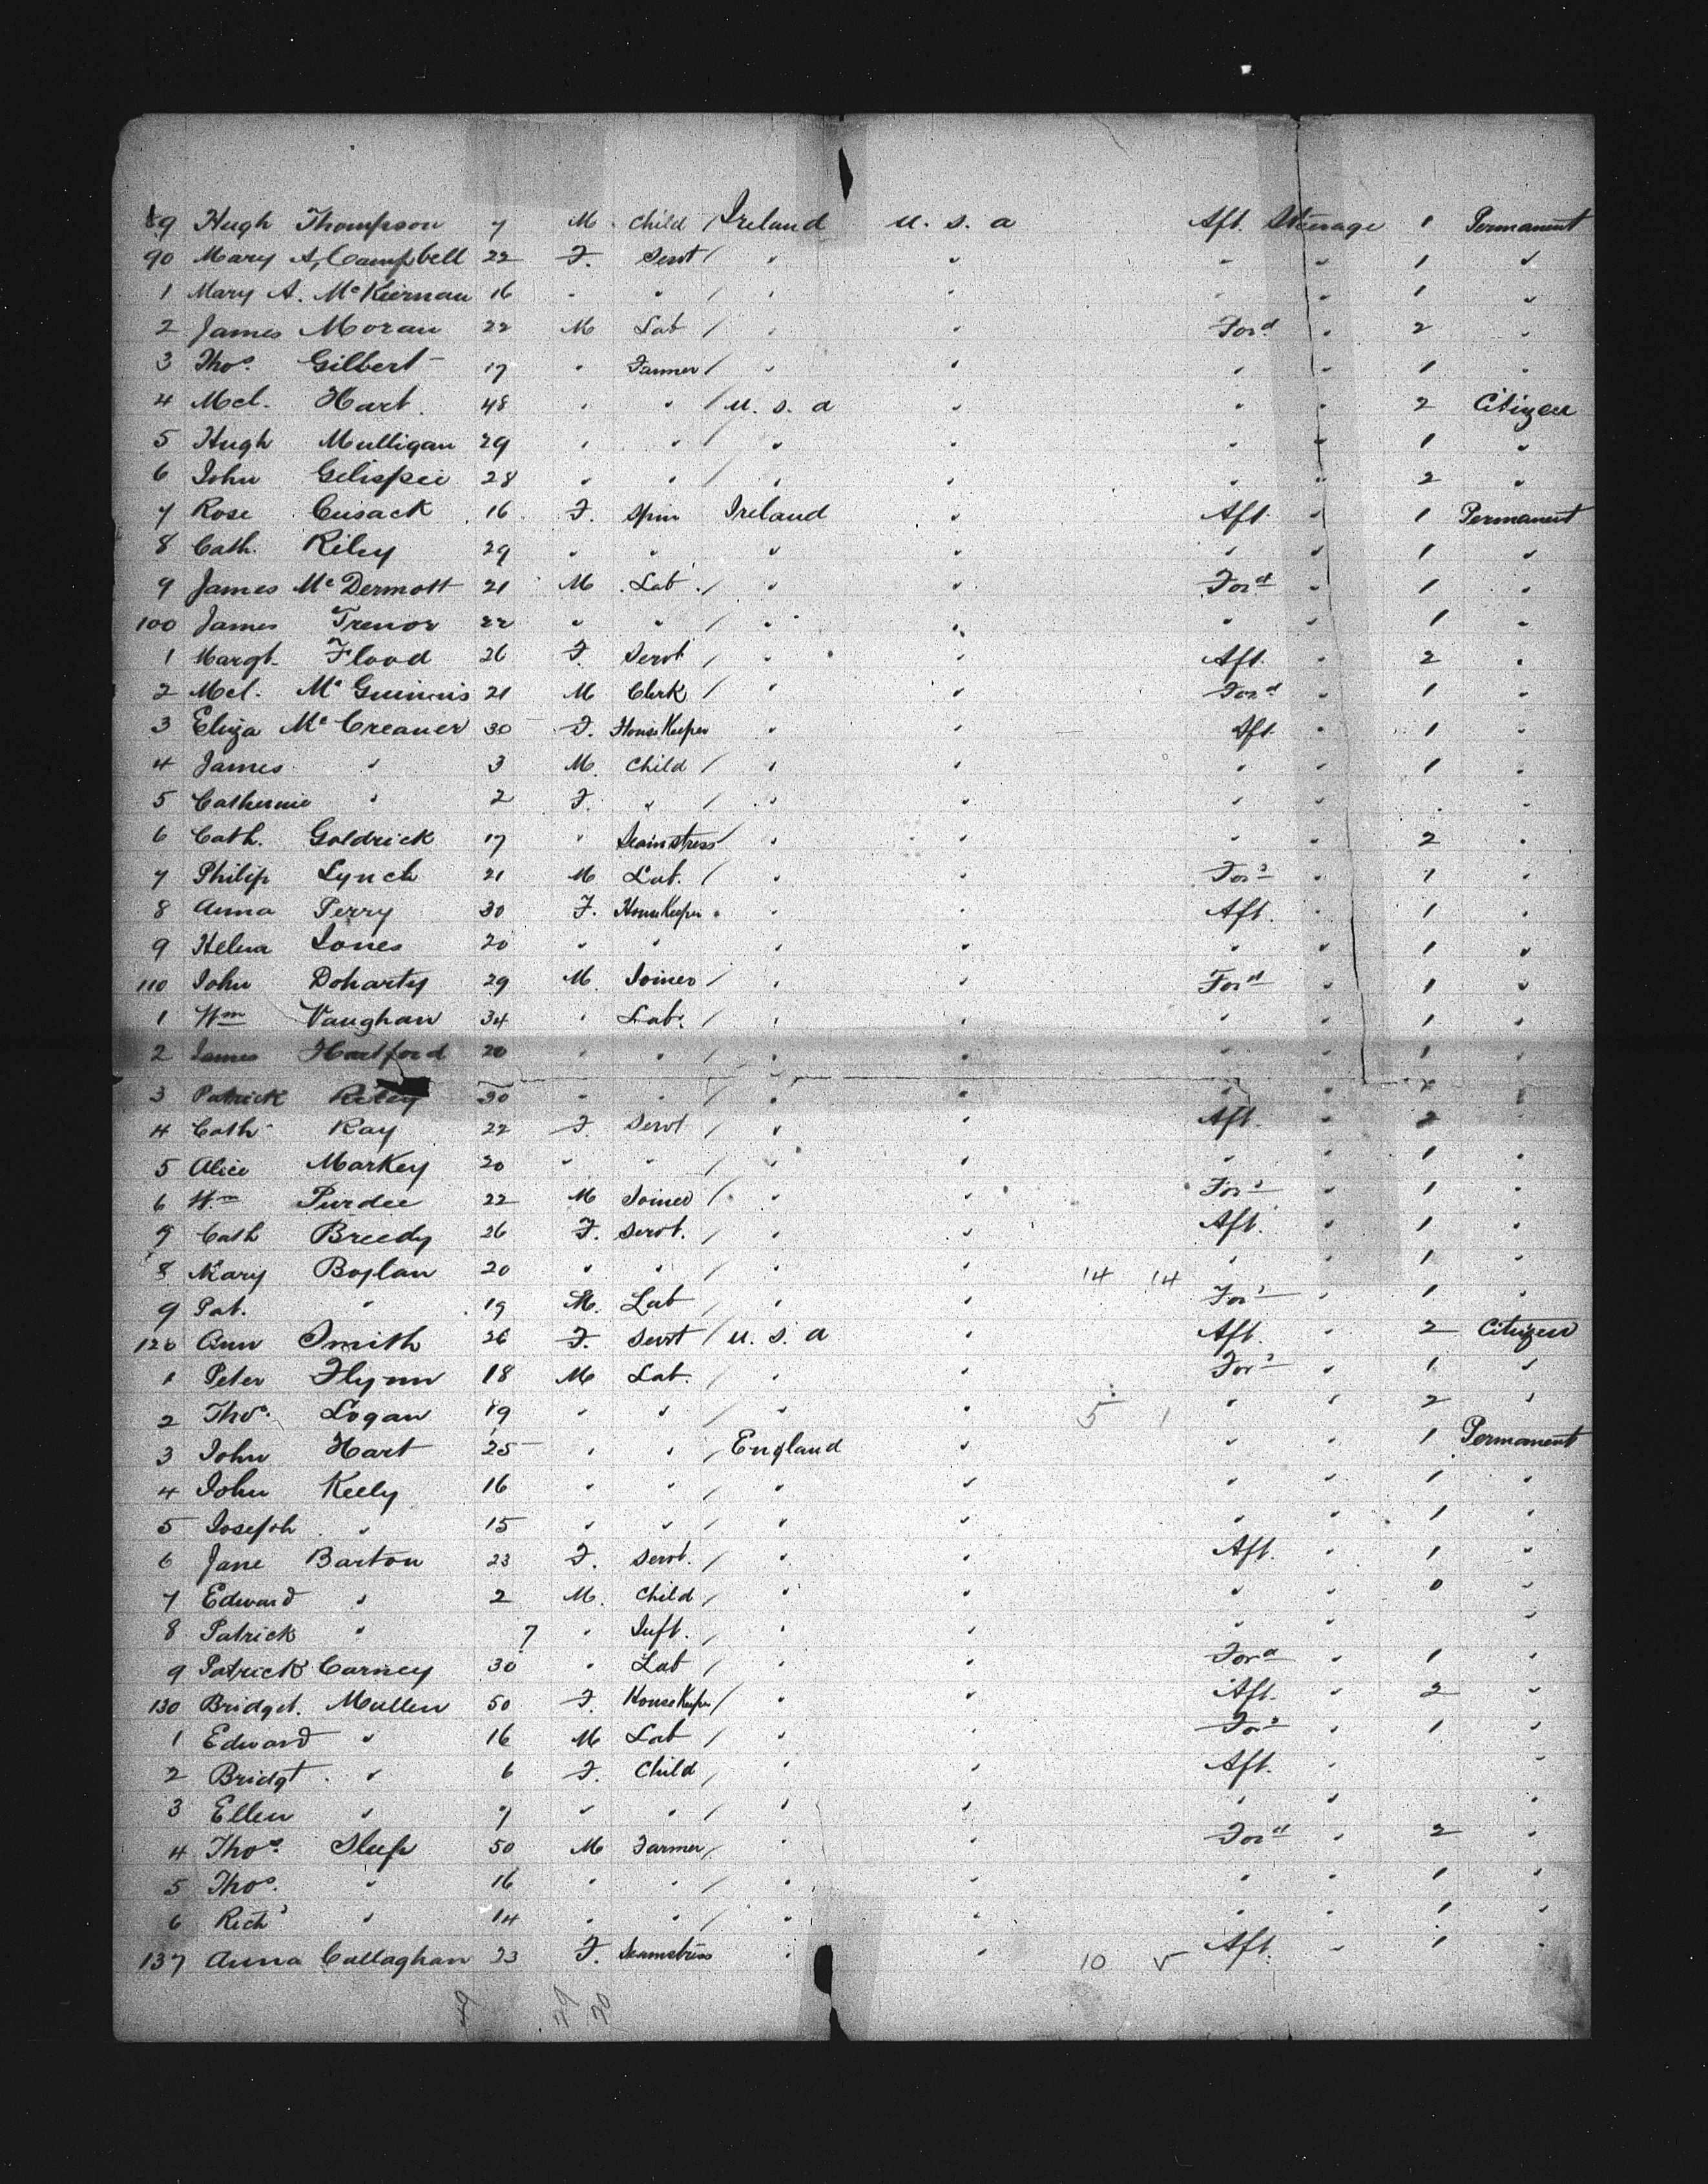 89 Hugh Thompson 7 M. Child / Ireland U. S. a Aft. Steerage 1 Permanent
90 Mary A, Campbell 22 F. Servt / " " " " 1 "
1 Mary A. McKiernan 16 " " / " " " " 1 "
2 James Moran 22 M Lab / " " Ford " 2 "
3 Thos. Gilbert 17 " Farmer / " " " " 1 "
4 Mcl. Hart. 48 " " / U. S. a " " " 2 Citizen
5 Hugh Mulligan 29 " " / " " " " 1 "
6 John Gelispie 28 " " / " " " " 2 "
7 Rose Cusack 16 F. Spin Ireland " Aft. " 1 Permanent
8 Cath. Riley 29 " " " " " " 1 "
9 James McDermott 21 M Lab. / " " Ford " 1 "
100 James Trenor 22 " " / " " " " 1 "
1 Margt. Flood 26 F. Servt / " " Aft. " 2 "
2 Mcl. McGuinnis 21 M Clerk / " " Ford " 1 "
3 Eliza McCreaner 30 F. HouseKeeper " " Aft. " 1 "
4 James " 3 M. Child / " " " " 1 "
5 Catherine " 2 F. " / " " " " "
6 Cath. Goldrick 17 " Seamstress / " " " " 2 "
7 Philip Lynch 21 M Lab. / " " Ford " 1 "
8 Anna Perry 30 F. HouseKeeper " " Aft. " 1 "
9 Helena Jones 20 " " " " " " 1 "
110 John Doharty 29 M. Joiner / " " Ford " 1 "
1 Wm Vaughan 34 " Lab. / " " " " 1 "
2 James Hartford 20 " " / " " " " 1 "
3 Patrick Riley 30 " " / " " " " "
4 Cath Ray 22 F. Servt / " " Aft. " 2 "
5 Alice Markey 20 " " / " " " " 1 "
6 Wm Purdee 22 M Joiner / " " Ford " 1 "
7 Cath Breedy 26 F. Servt. / " " Aft. " 1 "
8 Mary Boylan 20 " " / " " 14 14 " " 1 "
9 Pat. " 19 M. Lab / " " Ford " 1 "
120 Ann Smith 26 F. Servt / U. S. a " Aft. " 2 Citizen
1 Peter Flynn 18 M Lab. / " " Ford " 1 "
2 Thos. Logan 19 " " / " " 5 1 " " 2 "
3 John Hart 25 " " / England " " " 1 Permanent
4 John Keely 16 " " / " " " " 1 "
5 Joseph " 15 " " / " " " " 1 "
6 Jane Barton 23 F. Servt. / " " Aft. " 1 "
7 Edward " 2 M. Child / " " " " 0 "
8 Patrick " 7 " Inft. / " " " " "
9 Patrick Carney 30 " Lab / " " Ford " 1 "
130 Bridget. Mullen 50 F. HouseKeeper / " " Aft. " 2 "
1 Edward " 16 M Lab / " " Ford " 1 "
2 Bridgt. " 6 F. Child / " " Aft. " "
3 Ellen " 7 " " / " " " " "
4 Thos. Slup 50 M Farmer / " " Ford " 2 "
5 Thos. " 16 " " / " " " " 1 "
6 Richd " 14 " " / " " " " 1 "
137 Anna Callaghan 23 F. Seamstress " " 10 5 Aft. " 1 "